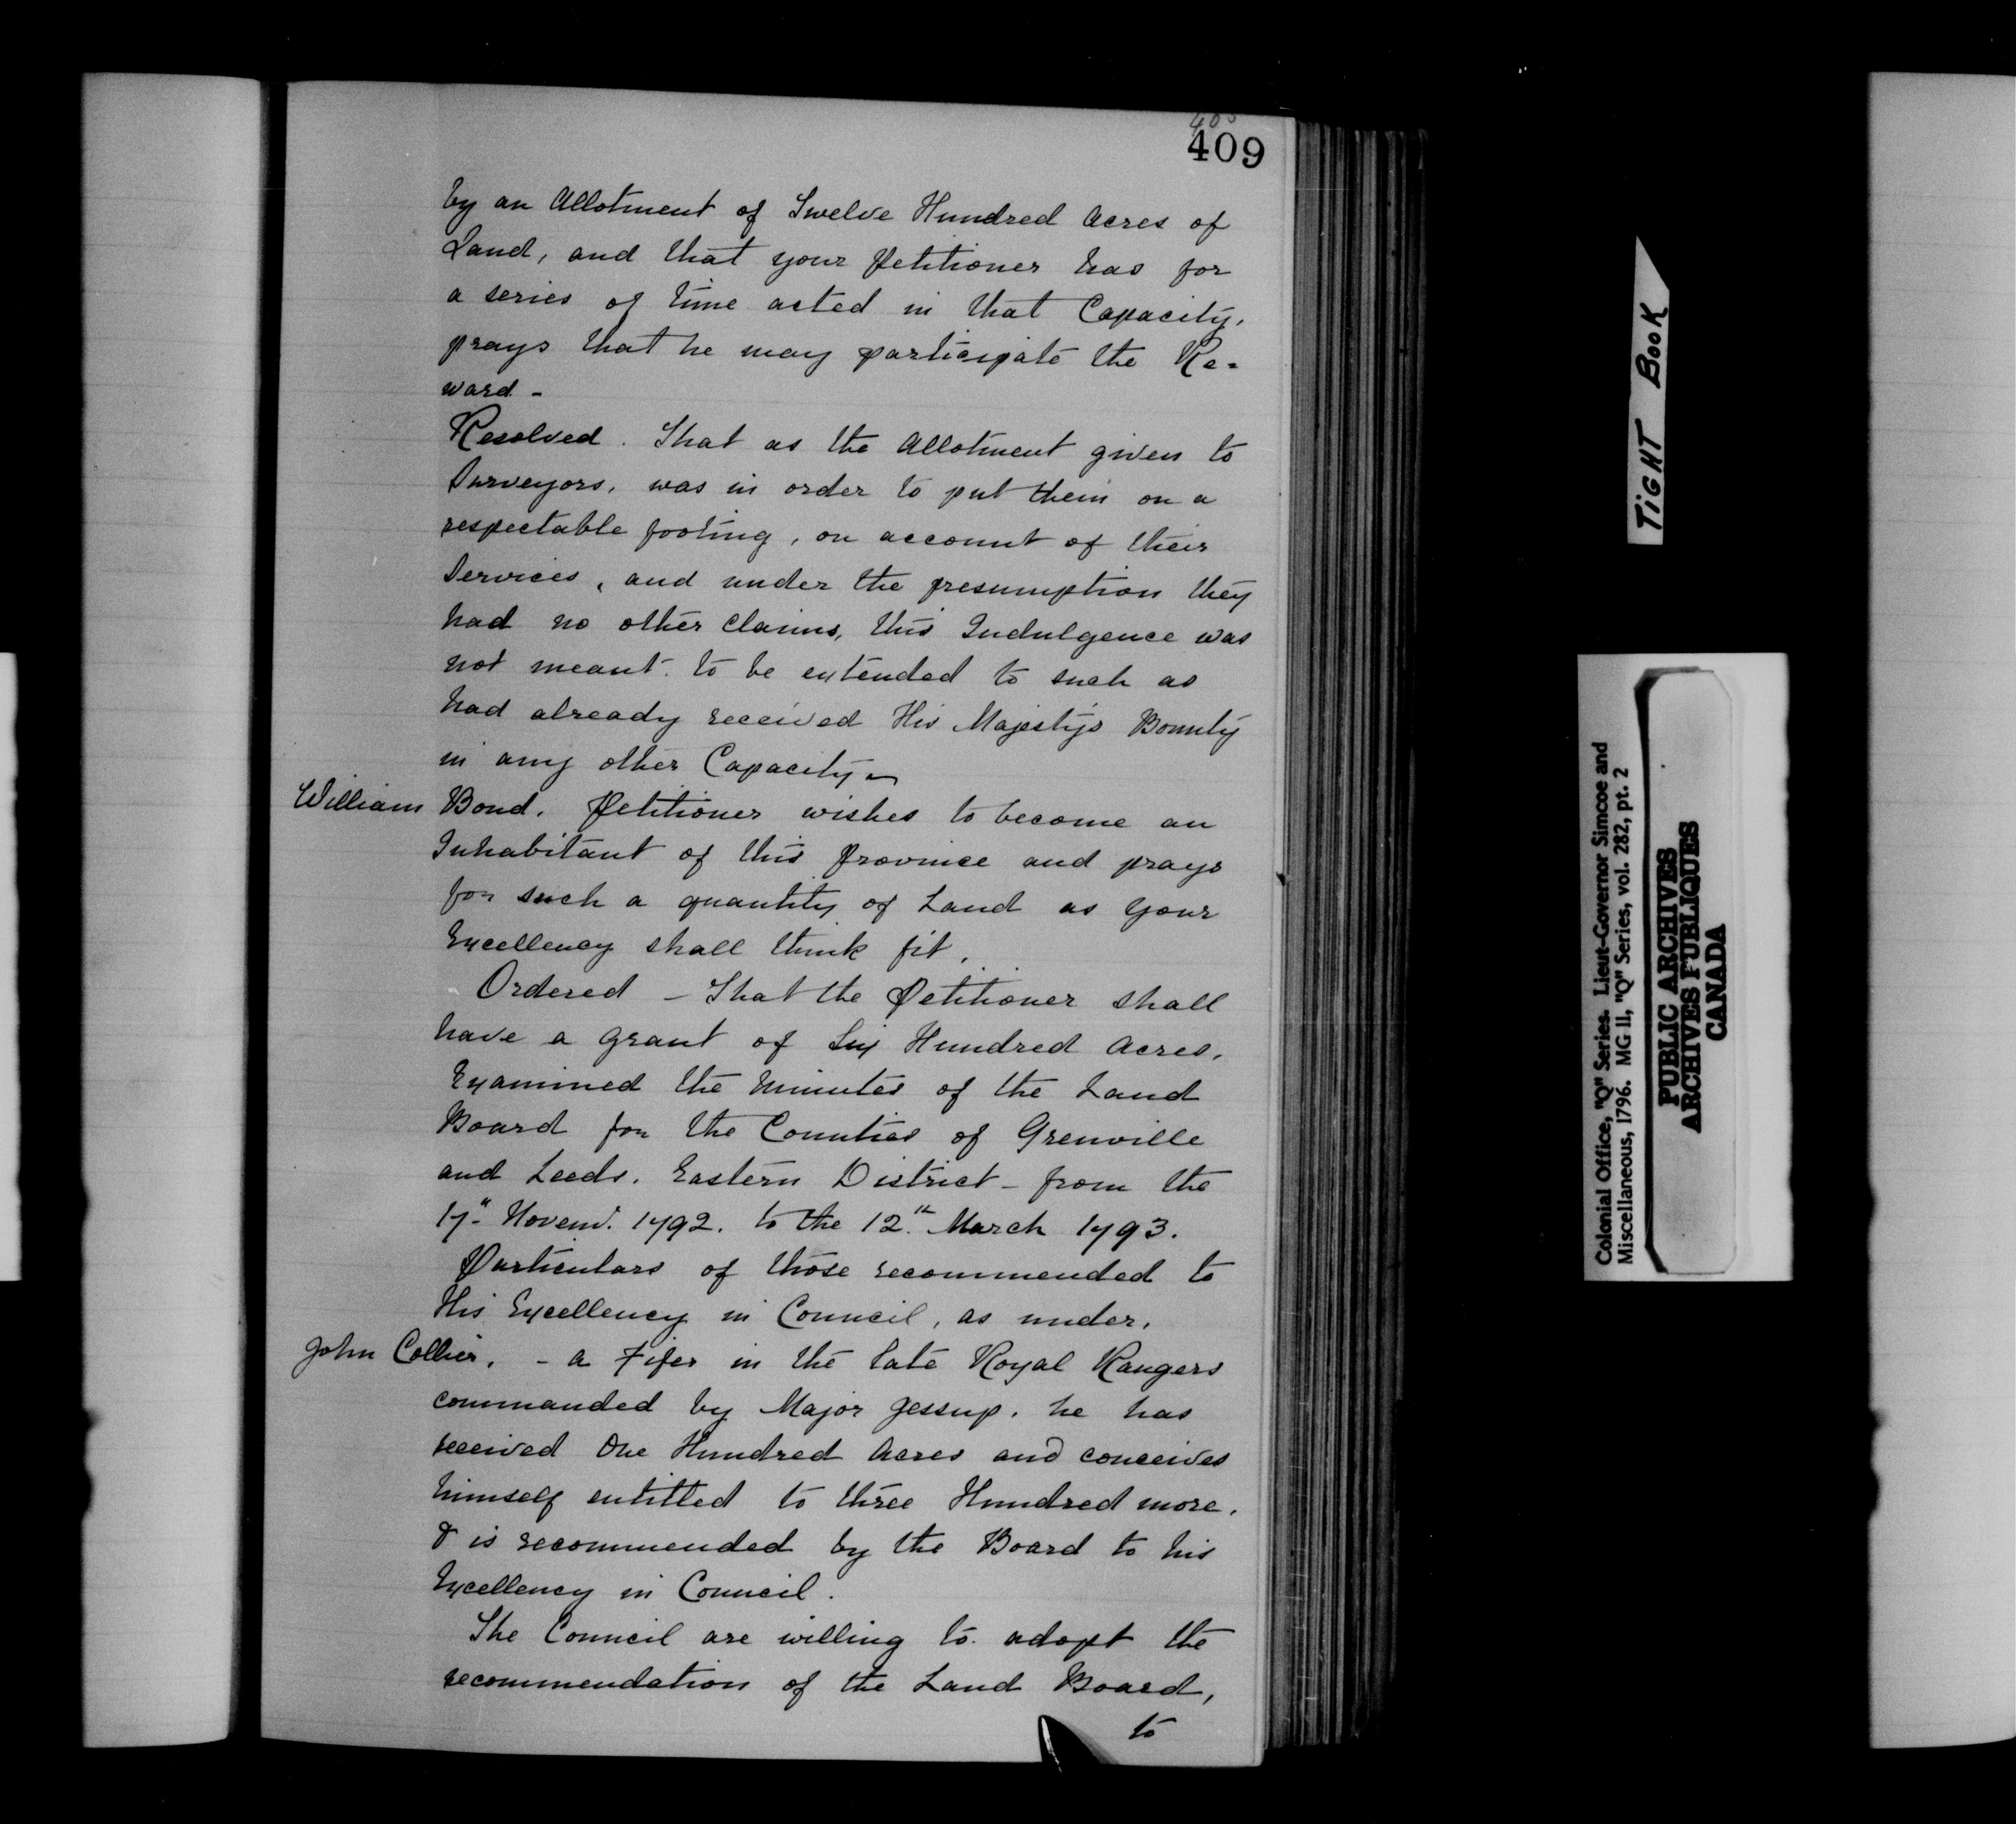 409
by an Allotment of Twelve Hundred Acres of
Land, and that your Petitioner has for
a series of time acted in that Capacity,
prays that he may participate the Re-
ward -
Resolved. That as the Allotment given to
Surveyors, was in order to put them on a
respectable footing, on account of their
Services, and under the presumption they
had no other Claims, this Indulgence was
not meant to be extended to such as
had already received His Majestys Bounty
in any other Capacity -
William Bond. Petitioner wishes to become an
Inhabitant of this Province and prays
for such a quantity of Land as your
Excellency shall think fit.
Ordered - That the Petitioner shall
have a grant of Six Hundred Acres.
Examined the Minutes of the Land
Board for the Counties of Grenville
and Leeds. Eastern District - from the
17" Novem'. 1792. to the 12th March 1793.
Particulars of those recommended to
His Excellency in Council, as under.
John Collier. - a Fifer in the late Royal Rangers
commanded by Major Jessup. he has
received One Hundred Acres and conceives
himself entitled to three Hundred more.
& is recommended by the Board to his
Excellency in Council.
The Council are willing to adopt the
recommendation of the Land Board,
to
TIGHT BOOK
Colonial Office, "Q" Series. Lieut-Governor Simcoe and
Miscellaneous, 1796. MG 11, "Q" Series, vol. 282, pt. 2
PUBLIC ARCHIVES
ARCHIVES PUBLIQUES
CANADA